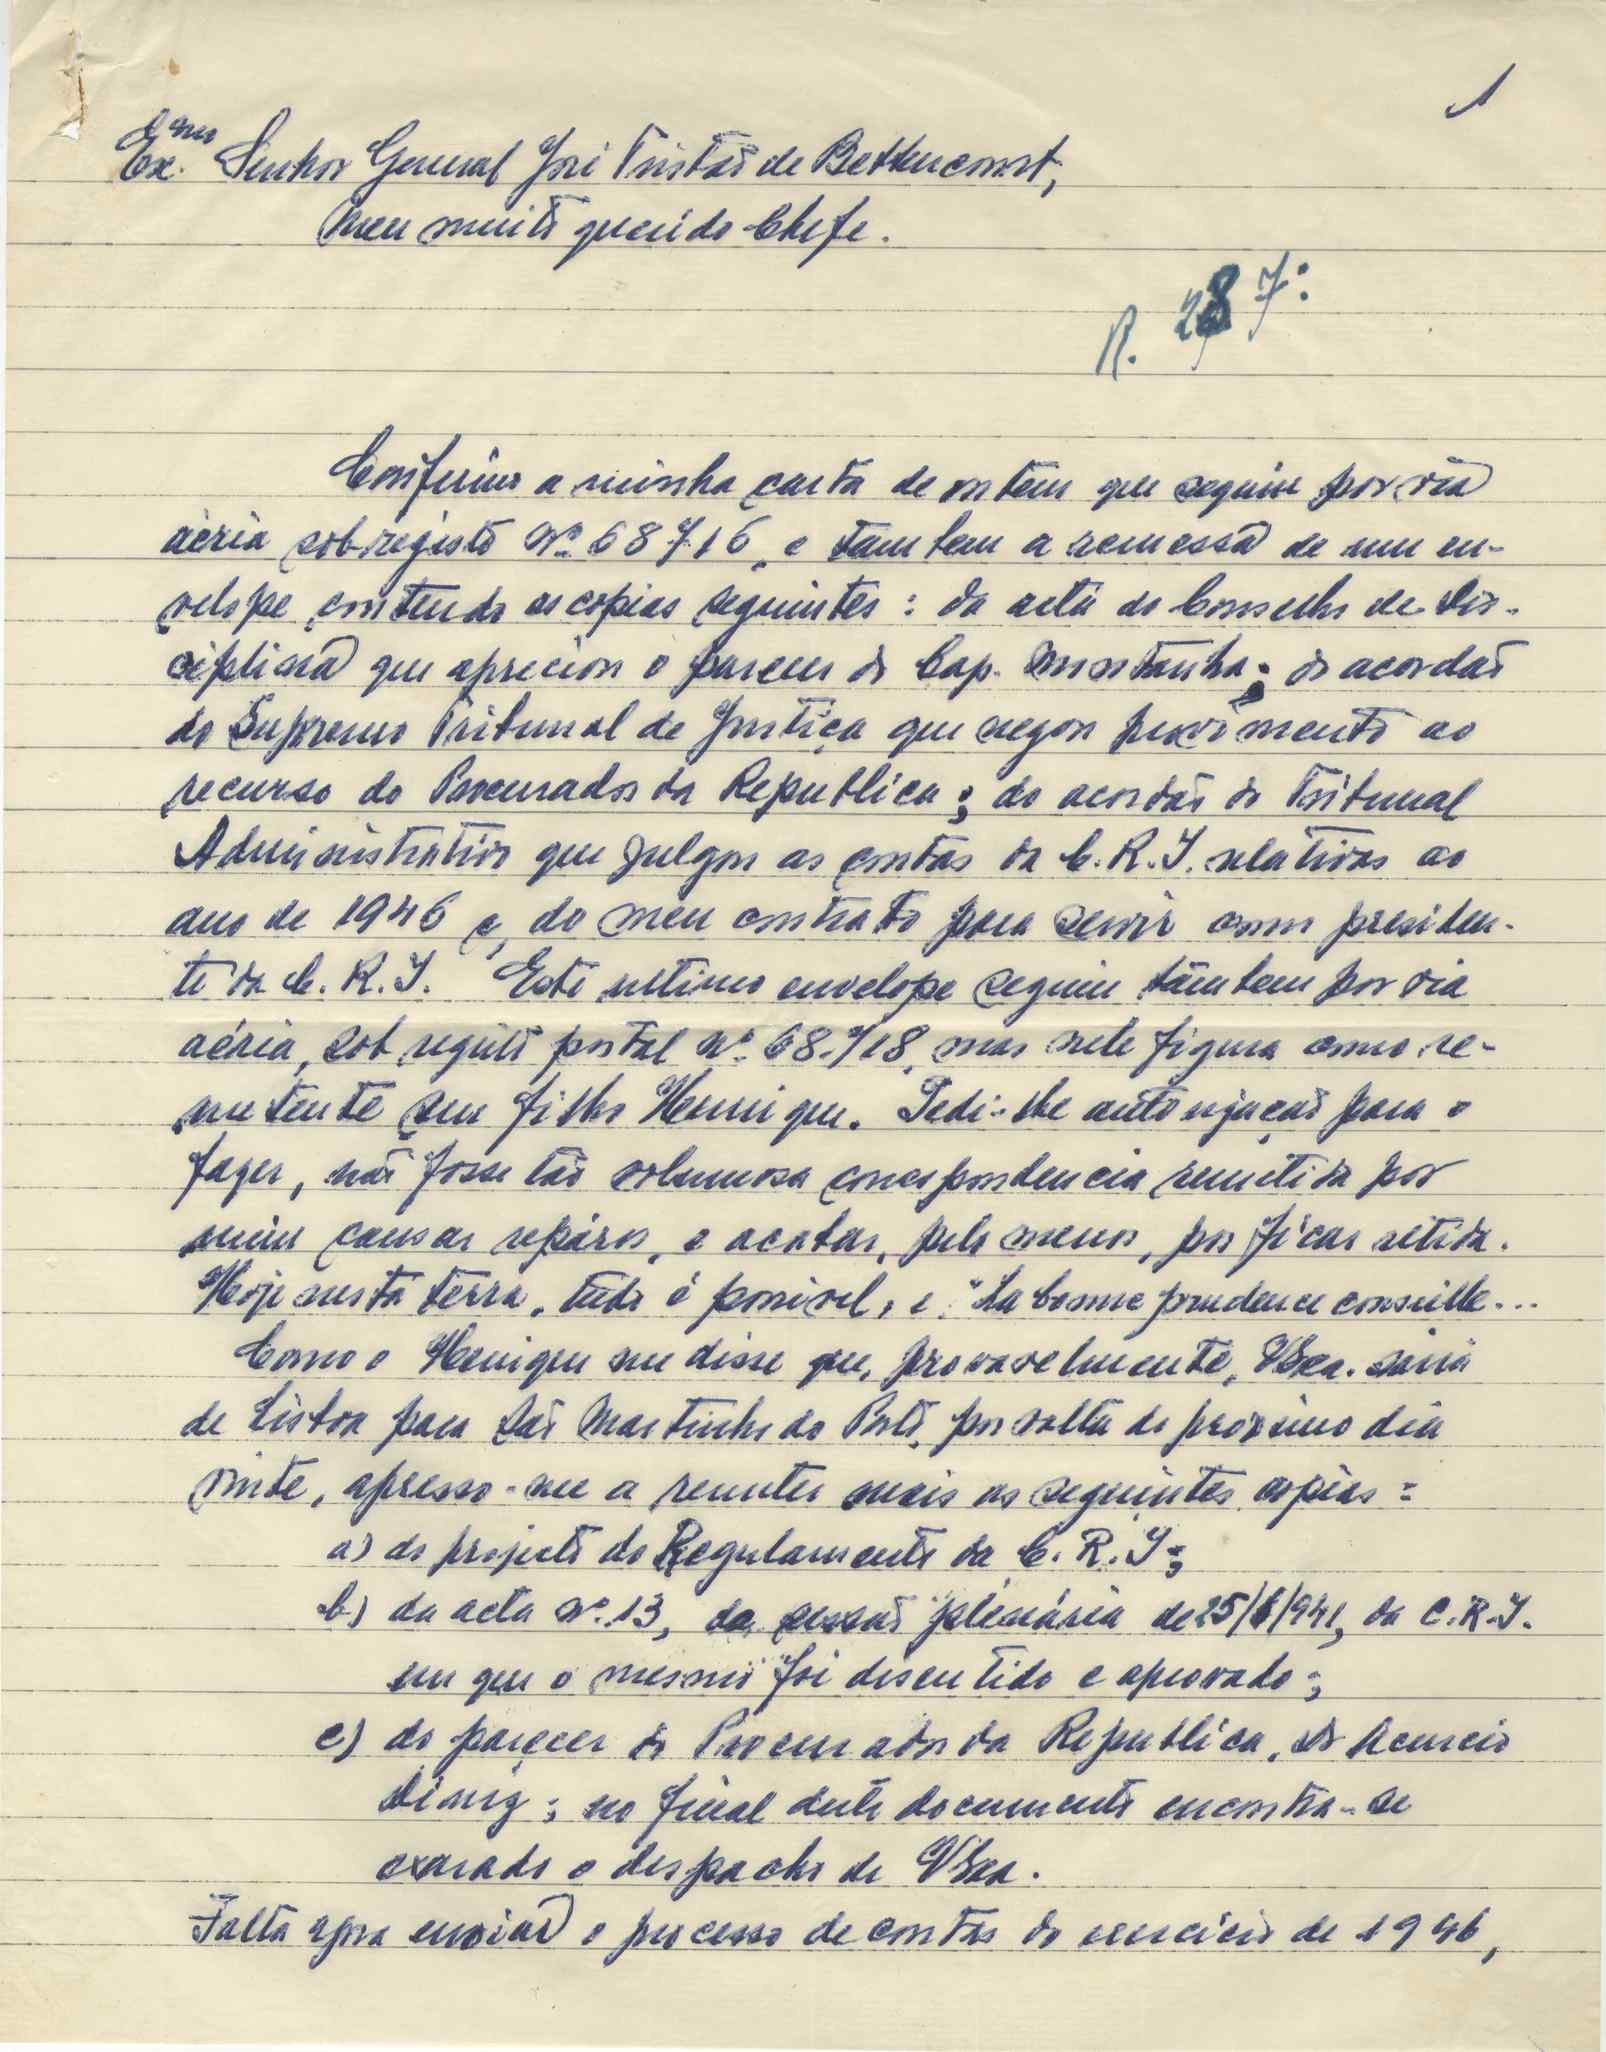 1
Ex.mo Senhor General José Tristão de Bettencourt,
Meu muito querido Chefe.
R. 28 7:
Confirmo a minha carta de ontem que seguiu por via
aéria sob registo Nº 68716, e tambem a remessa de um en-
velope contendo as copias seguintes: da acta do Conselho de Dis-
ciplina que apreciou o parecer do Cap. Montanha; do acordão
do Supremo Tribunal de Justiça que negou provimento ao
recurso do Procurador da Republica; do acordão do Tribunal
Administrativo que julgou as contas da C. R. I. relativas ao
ano de 1946 e, do meu contrato para servir como presiden-
te da C. R. I. Este ultimo envelope seguiu tâmbem por via
aéria, sob registo postal Nº 68.718, mas nele figura como re-
metente seu filho Henrique. Pedi-lhe autorização para o
fazer, não fosse tão volumosa correspondencia remetida por
mim causar reparos, e acabar, pelo menos, por ficar retida.
Hoje nesta terra, tudo é possivel, e "La bonne prudence conseille...
Como o Henrique me disse que, provavelmente, VExa. sairia
de Lisboa para São Martinho do Porto, por volta do proximo dia
vinte, apresso-me a remeter mais as seguintes copias:
a) do projecto do Regulamento da C. R. I.;
b) da acta Nº 13, da sessão plenária de 25/6/941, da C. R. I.
em que o mesmo foi discutido e aprovado;
c) do parecer do Procurador da Republica, Dr Acurcio
Diniz; no final deste documento encontra-se
exarado o despacho de VExa.
Falta agora enviar o processo de contas do exercicio de 1946,